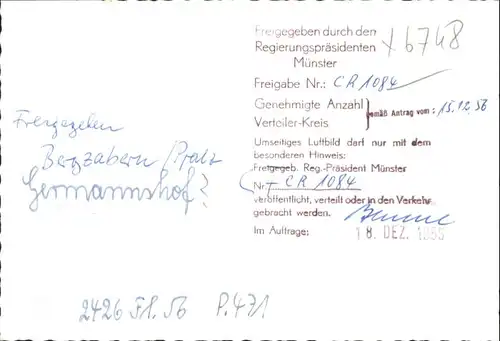 Freigegeben durch den
Regierungspräsidenten
Münster
x 6748
Freigabe Nr.: CR 1084
Genehmigte Anzahl
Verteiler-Kreis
gemäß Antrag vom: 15.12.56
Umseitiges Luftbild darf nur mit dem
besonderen Hinweis:
Freigegeb. Reg.-Präsident Münster
Nr. CR 1084
veröffentlicht, verteilt oder in den Verkehr
gebracht werden.
Im Auftrage:
18. DEZ. 1956
Freigegeben
Bergzabern /Pfalz
Germannshof?
2426 Fl. 56 P. 471